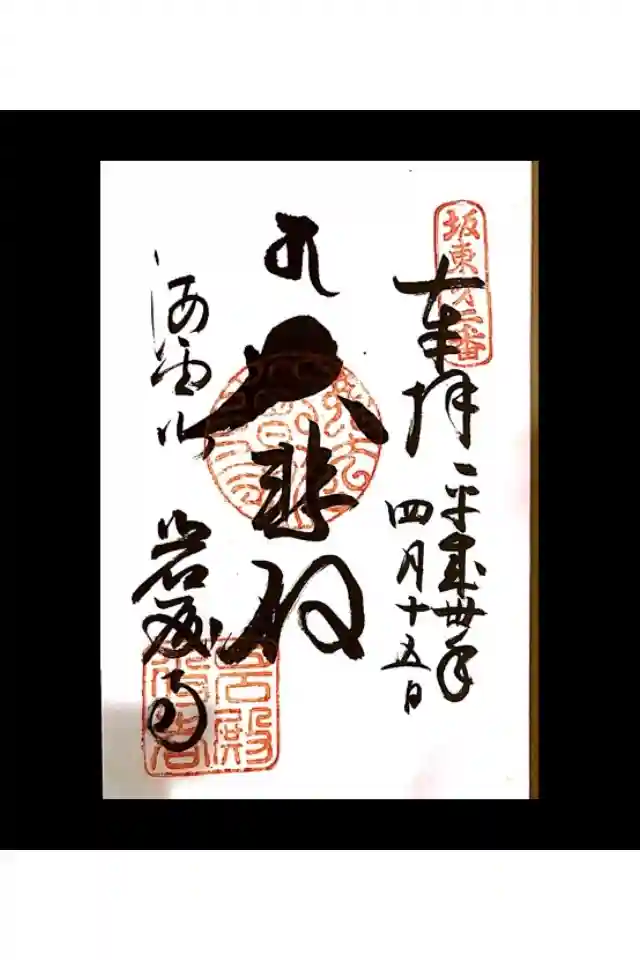 坂東第二番
奉拝
平成卅年
四月十五日
大悲殿
海雲山
岩殿寺